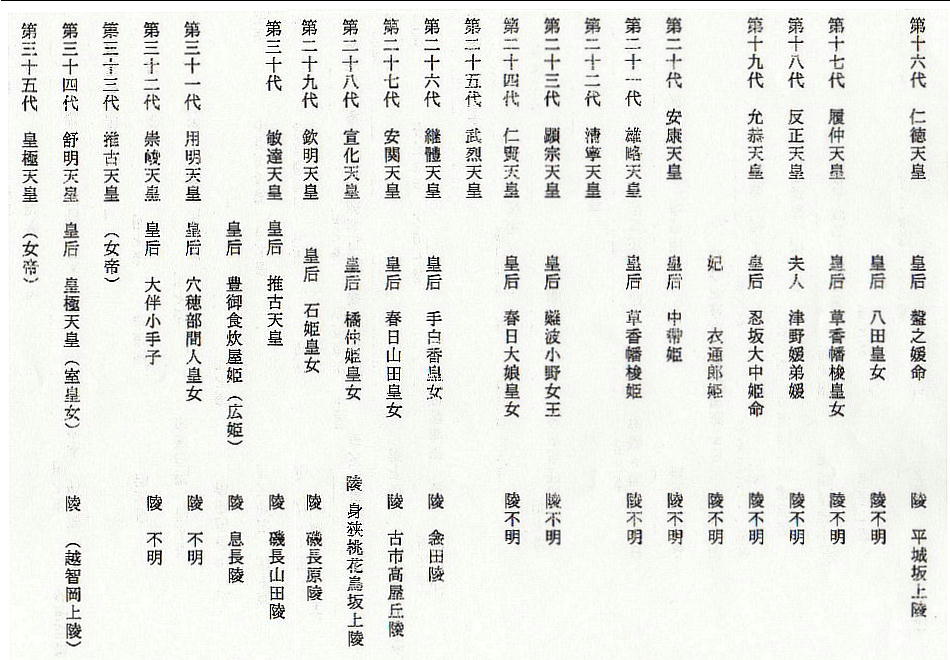 第十六代　仁徳天皇　皇后　盤之媛命　陵　平城坂上陵
皇后　八田皇女　陵不明
第十七代　履仲天皇　皇后　草香幡梭皇女　陵不明
第十八代　反正天皇　夫人　津野媛弟媛　陵不明
第十九代　允恭天皇　皇后　忍坂大中姫命　陵不明
妃　衣通郎姫　陵不明
第二十代　安康天皇　皇后　中帯姫　陵不明
第二十一代　雄略天皇　皇后　草香幡梭姫　陵不明
第二十二代　清寧天皇
第二十三代　顕宗天皇　皇后　難波小野女王　陵不明
第二十四代　仁賢天皇　皇后　春日大娘皇女　陵不明
第二十五代　武烈天皇
第二十六代　継體天皇　皇后　手白香皇女　陵　衾田陵
第二十七代　安閑天皇　皇后　春日山田皇女　陵　古市高屋丘陵
第二十八代　宣化天皇　皇后　橘仲姫皇女　陵　身狭桃花鳥坂上陵
第二十九代　欽明天皇　皇后　石姫皇女　陵　磯長原陵
第三十代　敏達天皇　皇后　推古天皇　陵　磯長山田陵
皇后　豊御食炊屋姫（広姫）　陵　息長陵
第三十一代　用明天皇　皇后　穴穂部間人皇女　陵　不明
第三十二代　崇峻天皇　皇后　大伴小手子　陵　不明
第三十三代　推古天皇　（女帝）
第三十四代　舒明天皇　皇后　皇極天皇（室皇女）　陵　（越智岡上陵）
第三十五代　皇極天皇　（女帝）